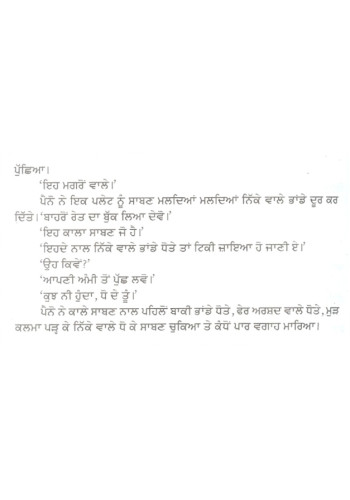 ਪੁੱਛਿਆ।
'ਇਹ ਮਗਰੋਂ ਵਾਲੇ।'
ਪੈਨੋ ਨੇ ਇਕ ਪਲੇਟ ਨੂੰ ਸਾਬਣ ਮਲਦਿਆਂ ਮਲਦਿਆਂ ਨਿੱਕੇ ਵਾਲੇ ਭਾਂਡੇ ਦੂਰ ਕਰ
ਦਿੱਤੇ। 'ਬਾਹਰੋਂ ਰੇਤ ਦਾ ਬੁੱਕ ਲਿਆ ਦੇਵੋ।'
'ਇਹ ਕਾਲਾ ਸਾਬਣ ਜੋ ਹੈ।'
'ਇਹਦੇ ਨਾਲ ਨਿੱਕੇ ਵਾਲੇ ਭਾਂਡੇ ਧੋਤੇ ਤਾਂ ਟਿਕੀ ਜ਼ਾਇਆ ਹੋ ਜਾਣੀ ਏ।'
'ਉਹ ਕਿਵੇਂ?'
'ਆਪਣੀ ਅੰਮੀ ਤੋਂ ਪੁੱਛ ਲਵੋ।'
'ਕੁਝ ਨੀ ਹੁੰਦਾ, ਧੋ ਦੇ ਤੂੰ।'
ਪੈਨੋ ਨੇ ਕਾਲੇ ਸਾਬਣ ਨਾਲ ਪਹਿਲੋਂ ਬਾਕੀ ਭਾਂਡੇ ਧੋਤੇ, ਫੇਰ ਅਰਸ਼ਦ ਵਾਲੇ ਧੋਤੇ, ਮੁੜ
ਕਲਮਾ ਪੜ੍ਹ ਕੇ ਨਿੱਕੇ ਵਾਲੇ ਧੋ ਕੇ ਸਾਬਣ ਚੁਕਿਆ ਤੇ ਕੰਧੋਂ ਪਾਰ ਵਗਾਹ ਮਾਰਿਆ।